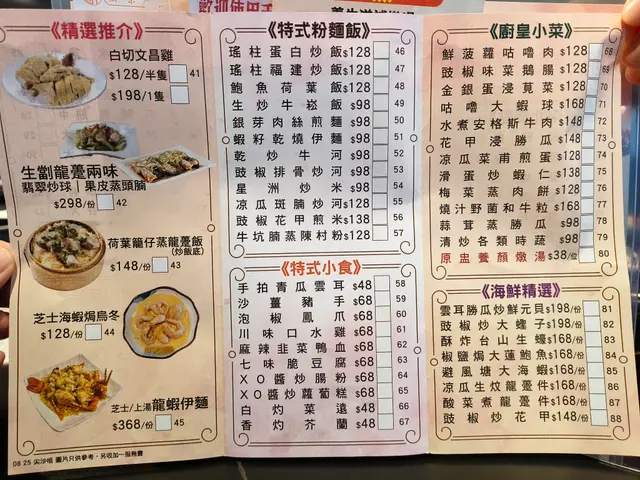 歡迎使用
《精選推介》
白切文昌雞
$128/半隻 41
$198/1隻
生劏龍躉兩味
翡翠炒球｜果皮蒸頭腩
$298/份 42
荷葉籠仔蒸龍躉飯
(炒飯底)
$148/份 43
芝士海蝦焗烏冬
$128/份 44
芝士/上湯龍蝦伊麵
$368/份 45
08 25 尖沙咀 圖片只供參考，另收加一服務費
《特式粉麵飯》
瑤柱蛋白炒飯$128 46
瑤柱福建炒飯$128 47
鮑魚荷葉飯$128 48
生炒牛崧飯$98 49
銀芽肉絲煎麵$98 50
蝦籽乾燒伊麵$98 51
乾炒牛河$98 52
豉椒排骨炒河$98 53
星洲炒米$98 54
涼瓜斑腩炒河$128 55
豉椒花甲煎米$138 56
牛坑腩蒸陳村粉$128 57
《特式小食》
手拍青瓜雲耳$48 58
沙薑豬手$68 59
泡椒鳳爪$68 60
川味口水雞$68 61
麻辣韭菜鴨血$68 62
七味脆豆腐$68 63
XO醬炒腸粉$68 64
XO醬炒蘿蔔糕$68 65
白灼菜遠$48 66
香灼芥蘭$48 67
《廚皇小菜》
鮮菠蘿咕嚕肉$128 68
豉椒味菜鵝腸$128 69
金銀蛋浸莧菜$128 70
咕嚕大蝦球$168 71
水煮安格斯牛肉$148 72
花甲浸勝瓜$148 73
涼瓜菜甫煎蛋$128 74
滑蛋炒蝦仁$138 75
梅菜蒸肉餅$128 76
燒汁野菌和牛粒$168 77
蒜茸蒸勝瓜$98 78
清炒各類時蔬$98 79
原盅養顏燉湯$38/位 80
《海鮮精選》
雲耳勝瓜炒鮮元貝$198/份 81
豉椒炒大蟶子$198/份 82
酥炸台山生蠔$168/份 83
椒鹽焗大蓮鮑魚$168/份 84
避風塘大海蝦$168/份 85
涼瓜生炆龍躉件$168/份 86
酸菜煮龍躉件$168/份 87
豉椒炒花甲$148/份 88